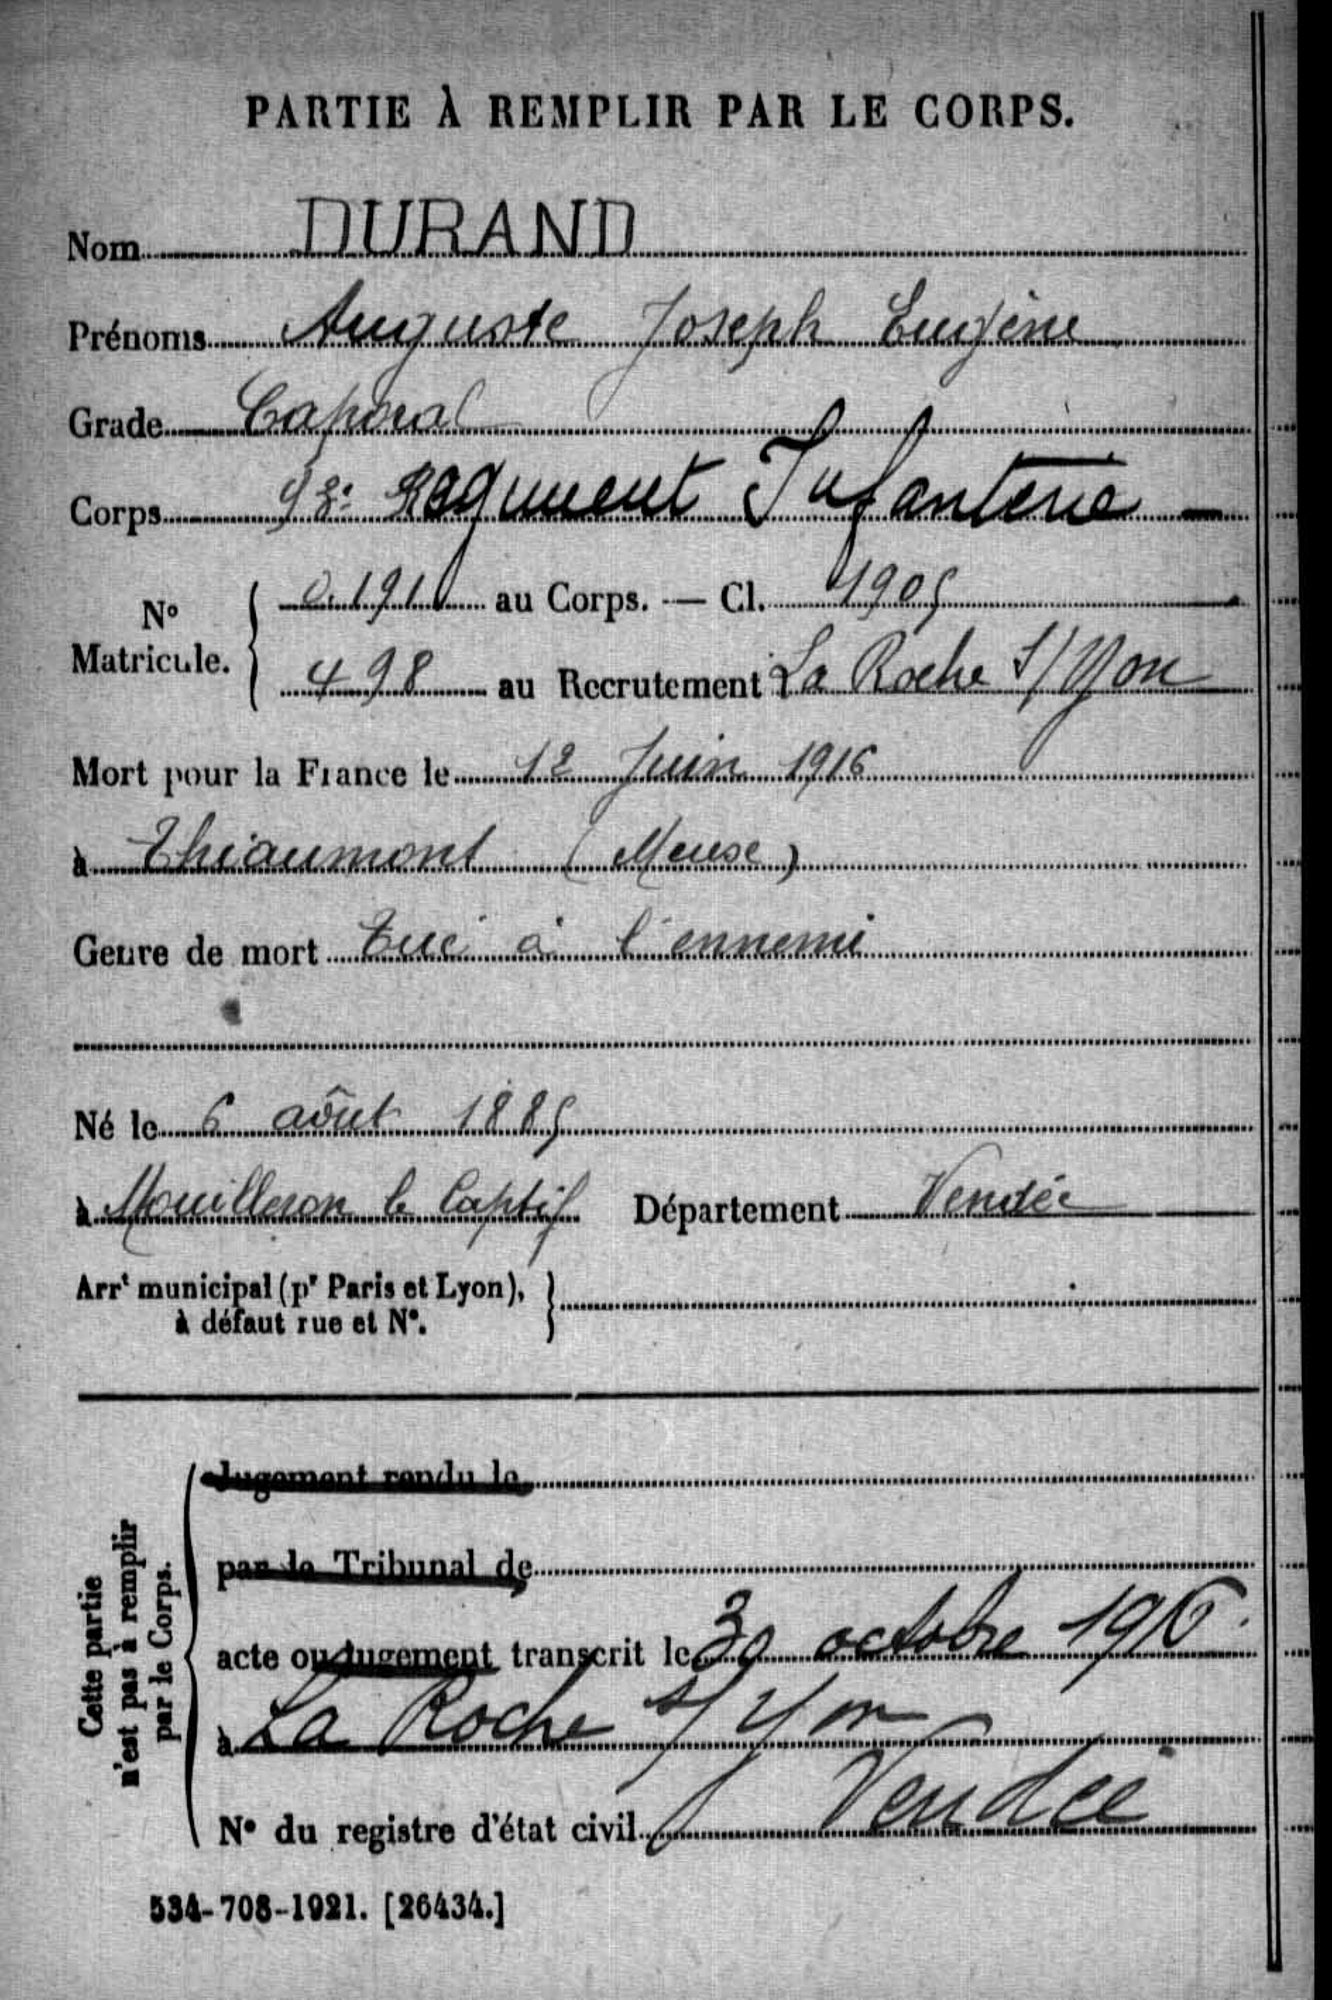 PARTIE À REMPLIR PAR LE CORPS.
Nom DURAND
Prénoms Auguste Joseph Eugène
Grade Caporal
Corps Régiment Infanterie —
N° Matricule. { 0.191 au Corps. — Cl. 1905
498 au Recrutement La Roche s/Yon
Mort pour la France le 12 Juin 1916
à Thiaumont (Meuse)
Genre de mort Tué à l'ennemi
Né le 6 août 1885
à Mouilleron le Captif Département Vendée
Arrt municipal (pr Paris et Lyon),
à défaut rue et N°.
Cette partie
n'est pas à remplir
par le Corps.
Jugement rendu le
par le Tribunal de
acte ou jugement transcrit le 30 octobre 1916
à La Roche s/Yon
N° du registre d'état civil Vendée
534-708-1921. [26434.]